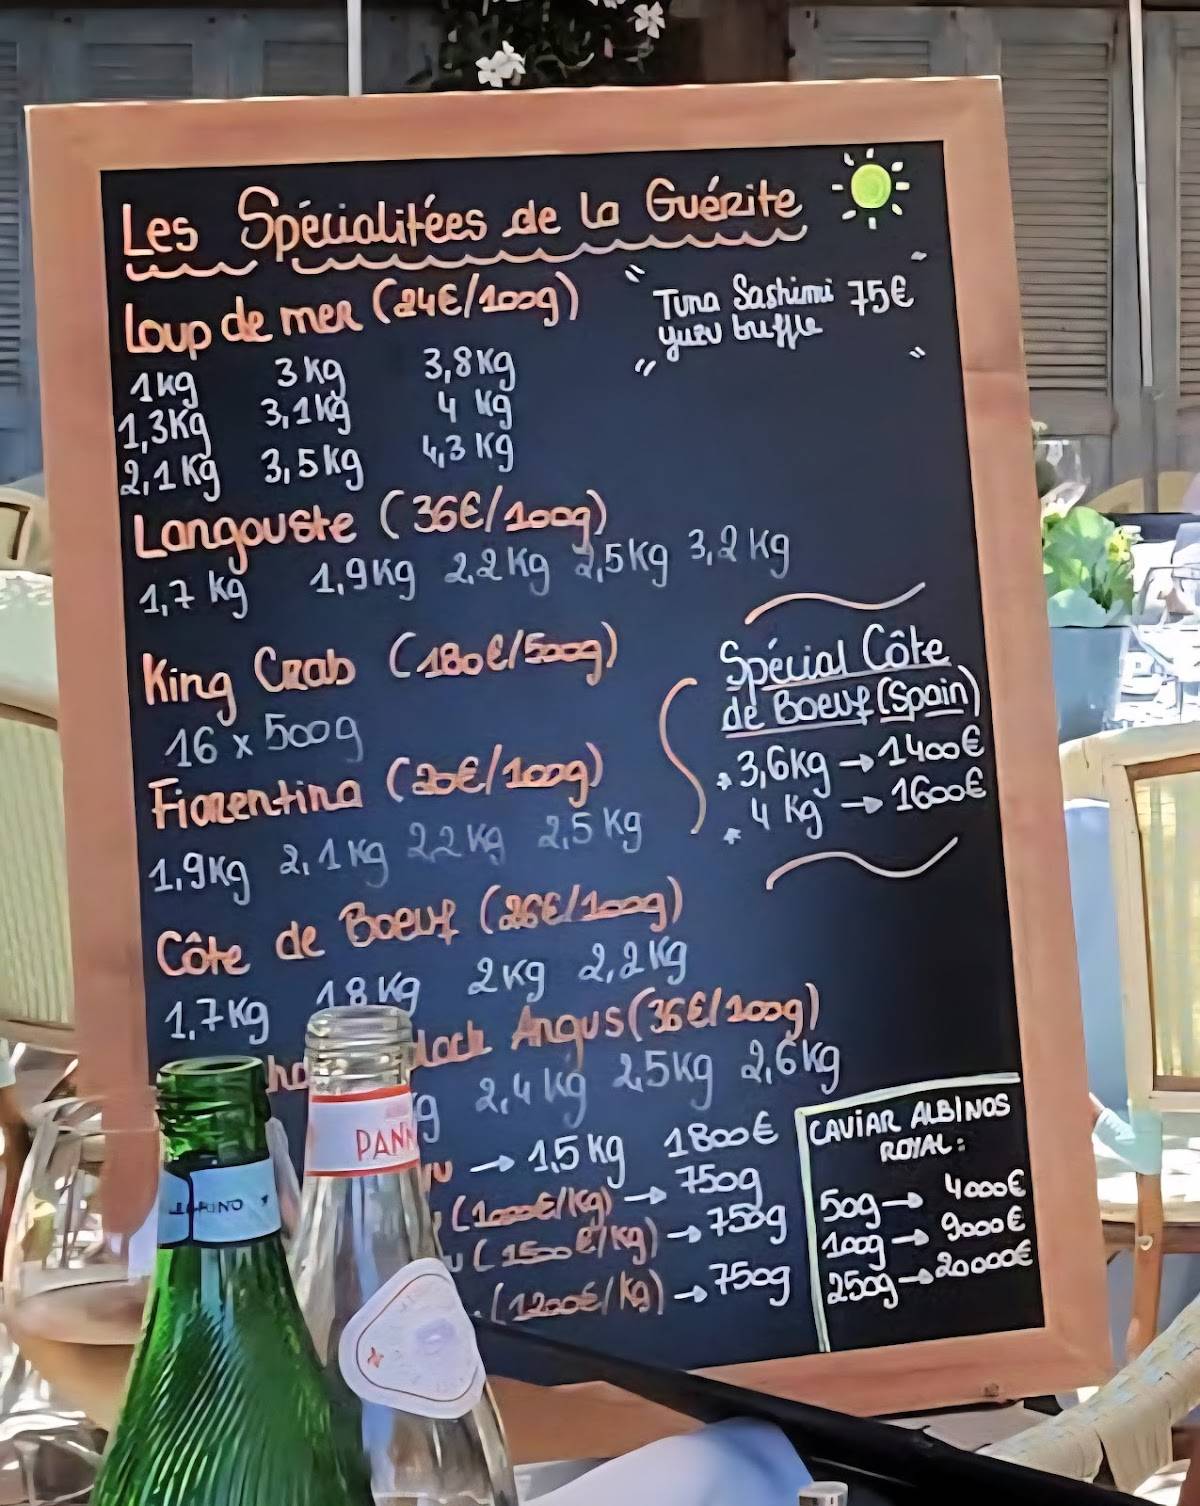 Les Spécialitées de la Guérite
Loup de mer (24€/100g)
1kg 3kg 3,8Kg
1,3Kg 3,1kg 4 Kg
2,1Kg 3,5kg 4,3 Kg
"Tuna Sashimi 75€"
"yuzu truffle"
Langouste (36€/100g)
1,7 kg 1,9Kg 2,2Kg 2,5Kg 3,2Kg
King Crab (180€/500g)
16 x 500g
Fiorentina (20€/100g)
1,9Kg 2,1Kg 2,2Kg 2,5Kg
Spécial Côte
de Boeuf (Spain)
* 3,6kg → 1400€
* 4 Kg → 1600€
Côte de Boeuf (26€/100g)
1,7Kg 1,8Kg 2Kg 2,2Kg
Angus (36€/100g)
2,4Kg 2,5Kg 2,6Kg
→ 1,5Kg 1800€
(1000€/Kg) → 750g
(1500€/Kg) → 750g
(1200€/Kg) → 750g
CAVIAR ALBINOS
ROYAL:
50g → 4000€
100g → 9000€
250g → 20000€
PANN